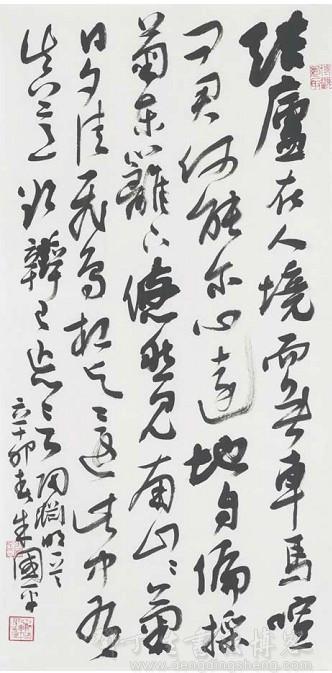 結廬在人境而無車馬喧
問君何能尔心遠地自偏採
菊東籬下悠然見南山々氣
日夕佳飛鳥相与還此中有
真意欲辯已忘言陶淵明
辛卯春朱國平
www.dengdingsheng.com